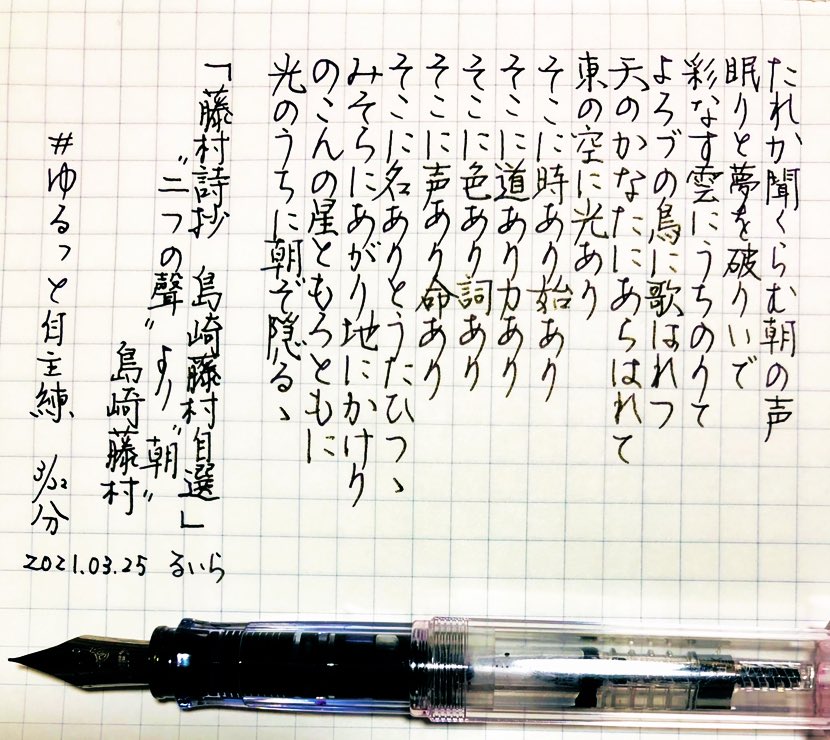 たれか聞くらむ朝の声
眠りと夢を破りいで
彩なす雲にうちのりて
よろづの鳥に歌はれつ
天のかなたにあらはれて
東の空に光あり
そこに時あり始あり
そこに道あり力あり
そこに色あり詞あり
そこに声あり命あり
そこに名ありとうたひつゝ
みそらにあがり地にかけり
のこんの星ともろともに
光のうちに朝ぞ隠るゝ
「藤村詩抄 島崎藤村自選」
"二つの聲"より"朝"
島崎藤村
#ゆるっと自主練 3/22分
2021.03.25 るいら